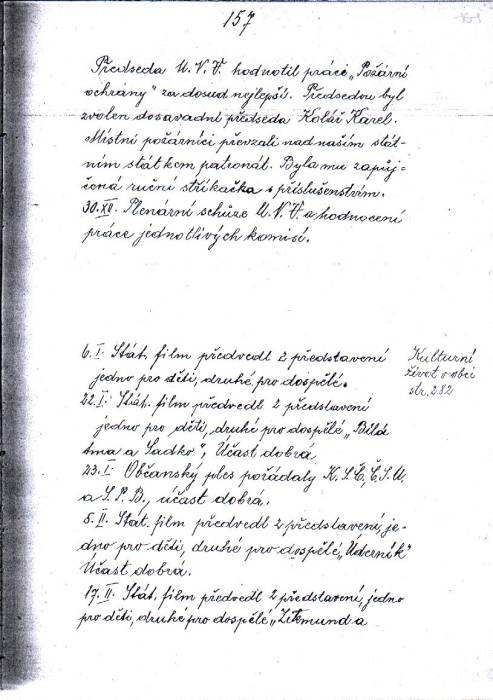 157
Předseda U.N.V. hodnotil práci „Požární
ochrany" za dosud nejlepší. Předsedou byl
zvolen dosavadní předseda Kolář Karel.
Místní požárníci převzali nad naším stát-
ním statkem patronát. Byla mu zapůj-
čená ruční stříkačka s příslušenstvím.
30.XII. Plenární schůze M.N.V. a hodnocení
práce jednotlivých komisí.
6.I. Stát. film předvedl 2 představení
jedno pro děti, druhé pro dospělé.
Kulturní
život v obci
str. 282
22.I. Stát. film předvedl 2 představení
jedno pro děti, druhé pro dospělé „Bílá
tma a Sadko", Účast dobrá
23.I. Občanský ples pořádaly K.S.Č, Č.S.M.
a S.P.B., účast dobrá.
5.II. Stát. film předvedl 2 představení, je-
dno pro děti, druhé pro dospělé „Úderník"
Účast dobrá.
17.II. Stát. film předvedl 2 představení, jedno
pro děti, druhé pro dospělé „Zikmund a